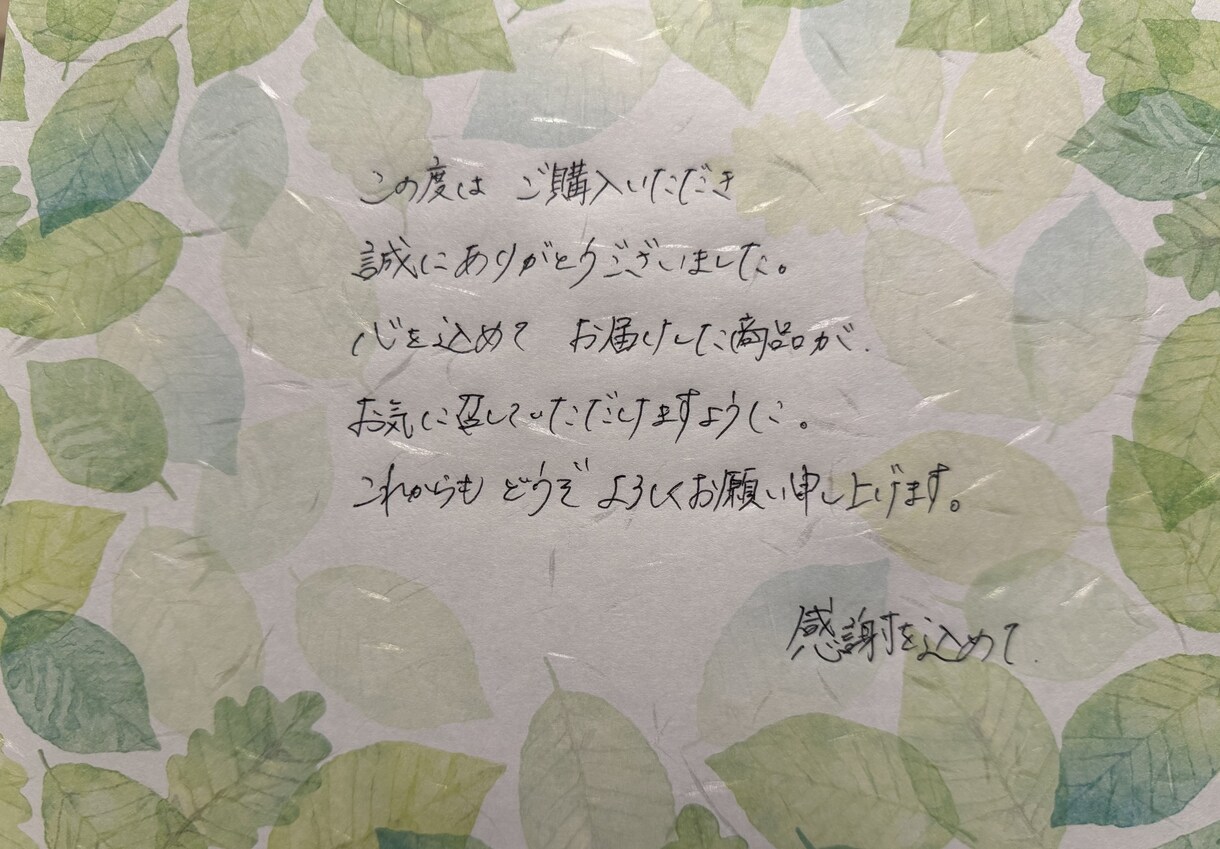 この度は ご購入いただき
誠にありがとうございました。
心を込めて お届けした商品が、
お気に召していただけますように。
これからも どうぞ よろしくお願い申し上げます。
感謝を込めて.